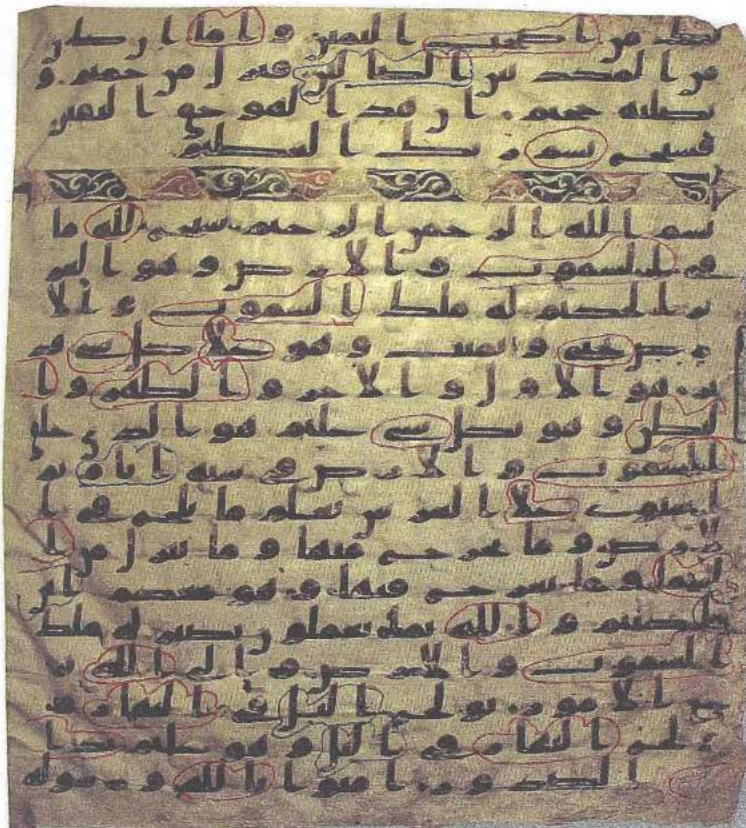 لك من اصحب اليمين و اما ان كان
من المكذبين الضالين فنزل من حميم و
تصليه جحيم ان هذا لهو حق اليقين
فسبح بسم ربك العظيم
بسم الله الرحمن الرحيم سبح لله ما
في السموت والارض وهو العز
يز الحكيم له ملك السموت والا
رض يحى ويميت وهو علا كل شى قد
ير هو الاول والاخر والظهر وا
لبطن وهو بكل شى عليم هو الذي خلق
السموت والارض في ستة ايام ثم
استوى علا العرش يعلم ما يلج في ا
لارض وما يخرج منها وما ينزل من ا
لسما وما يعرج فيها وهو معكم اين
ما كنتم والله بما تعملون بصير له ملك
السموت والارض والى الله تر
جع الامور يولج اليل في النهار و
يولج النهار في اليل وهو عليم بذا
ت الصدور امنوا بالله ورسوله